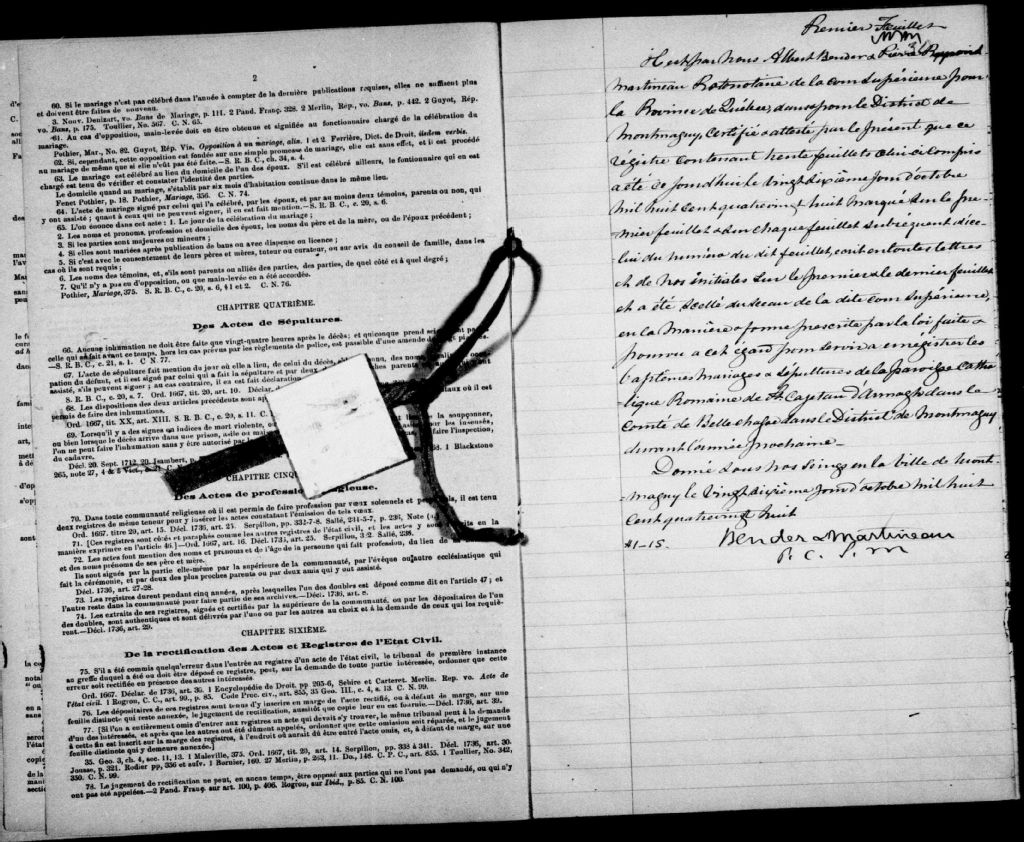 2
60. Si le mariage n'est pas célébré dans l'année à compter de la dernière publications requises, elles ne suffisent plus
et doivent être faites de nouveau.
3. Nouv. Denizart, vo. Bans de Mariage, p. 111. 2 Pand. Franç. 328. 2 Merlin, Rép., vo. Bans, p. 442. 2 Guyot, Rép.
vo. Bans, p. 175. Toullier, No. 567. C. N. 65.
61. Au cas d'opposition, main-levée doit en être obtenue et signifiée au fonctionnaire chargé de la célébration du
mariage.
Pothier, Mar., No. 82. Guyot, Rép. Vis. Opposition à un mariage, alin. 1 et 2 Ferrière, Dict. de Droit, iisdem verbis.
62. Si, cependant, cette opposition est fondée sur une simple promesse de mariage, elle est sans effet, et il est procédé
au mariage de même que si elle n'eût pas été faite.—S. R. B. C., ch. 34, s. 4.
63. Le mariage est célébré au lieu du domicile de l'un des époux. S'il est célébré ailleurs, le fontionnaire qui en est
chargé est tenu de vérifier et constater l'identité des parties.
Le domicile quand au mariage, s'établit par six mois d'habitation continue dans le même lieu.
Fenet Pothier, p. 18. Pothier, Mariage, 356. C. N. 74.
64. L'acte de mariage signé par celui qui l'a célébré, par les époux, et par au moins deux témoins, parents ou non, qui
y ont assisté; quant à ceux qui ne peuvent signer, il en est fait mention.—S. R. B. C., c. 20, s. 6.
65. L'on énonce dans cet acte: 1. Le jour de la célébration du mariage;
2. Les noms et prenoms, profession et domicile des époux, les noms du père et de la mère, ou de l'époux précédent;
3. Si les parties sont majeures ou mineurs;
4. Si elles sont mariées après publication de bans ou avec dispense ou licence;
5. Si c'est avec le consentement de leurs pères et mères, tuteur ou curateur, ou sur avis du conseil de famille, dans les
cas où ils sont requis;
6. Les noms des témoins, et, s'ils sont parents ou alliés des parties, des parties, de quel côté et à quel degré;
7. Qu'il n'y a pas eu d'opposition, ou que main-levée en a été accordée.
Pothier, Mariage, 375. S. R. B. C., c. 20, s. 6, § 1 et 2. C. N. 76.
CHAPITRE QUATRIÈME.
Des Actes de Sépultures.
66. Aucune inhumation ne doit être faite que vingt-quatre heures après le décès; et quiconque prend
celle qui se fait avant ce temps, hors les cas prévus par les règlements de police, est passible d'une amende
—S. R. B. C., c. 21, s. 1. C N 77.
67. L'acte de sépulture fait mention du jour où elle a lieu, de celui du décès,
pation du défunt, et il est signé par celui qui a fait la sépulture et par deux
assisté, s'ils peuvent signer; au cas contraire, il en est fait déclaration
S. R. B. C., c. 20, s. 7. Ord. 1667, tit. 20, art. 10. Déclar.
68. Les dispositions des deux articles précédents sont applicables où il est
permis de faire des inhumations.
Ord. 1667, tit. XX, art. XIII. S. R. B. C., c. 20, s. 11. C.
69. Lorsqu'il y a des signes ou indices de mort violente, la soupçonner,
ou bien lorsque le décès arrive dans une prison, asile ou les insensés,
l'on ne peut faire l'inhumation sans y être autorisé par l'inspection,
du cadavre.
Décl. 20. Sept. 1712, 20 Isambert, p. 1 Blackstone
265, note 27,
CHAPITRE CINQ
Des Actes de profession religieuse.
70. Dans toute communauté religieuse où il est permis de faire profession par vœux solennels et il est tenu
deux registres de même teneur pour y insérer les actes constatant l'émission de tels vœux.
Ord. 1667. titre 20, art. 15. Décl. 1736, art. 25. Serpillon, pp. 332-7-8. Sallé, 234-5-7, p. 236, Note
71. [Ces registres sont côtés et paraphés comme les autres registres de l'état civil, et les actes y sont en la
manière exprimée en l'article 46.]—Ord. 1667, art. 16. Décl. 1736, art. 25. Serpillon, 3:2. Sallé, 236.
72. Les actes font mention des noms et prenoms et de l'âge de la personne qui fait profession, du lieu de
et des noms prénoms de ses père et mère.
Ils sont signés par la partie elle-même par la supérieure de la communauté, par l'évêque ou autre ecclésiastique qui
fait la cérémonie, et par deux des plus proches parents ou par deux amis qui y ont assisté.
Décl. 1736, art. 27-28.
73. Les registres durent pendant cinq années, après lesquelles l'un des doubles est déposé comme dit en l'article 47; et
l'autre reste dans la communauté pour faire partie de ses archives.—Décl. 1736, art. 8.
74. Les extraits de ses registres, signés et certifiés par la supérieure de la communauté, ou par les dépositaires de l'un
des doubles, sont authentiques et sont délivrés par l'une ou par les autres au choix et à la demande de ceux qui les requiè-
rent.—Décl. 1736, art. 29.
CHAPITRE SIXIÈME.
De la rectification des Actes et Registres de l'Etat Civil.
75. S'il a été commis quelqu'erreur dans l'entrée au registre d'un acte de l'état civil, le tribunal de première instance
au greffe duquel a été ou doit être déposé ce registre, peut, sur la demande de toute partie intéressée, ordonner que cette
erreur soit rectifiée en présence des autres intéressés.
Ord. 1667. Déclar. de 1736, art. 30. 1 Encyclopédie de Droit, pp 265-6, Sebire et Carteret. Merlin. Rep. vo. Acte de
l'état civil. 1 Rogron, C. C., art. 99., p. 85. Code Proc. civ., art. 855, 35 Geo. III., c. 4, s. 13. C. N. 99.
76. Les dépositaires de ces registres sont tenus d'y inscrire en marge de l'acte rectifié, ou à défaut de marge, sur une
feuille distincte qui reste annexée, le jugement de rectification, aussitôt que copie leur en est fournie.—Décl. 1736, art. 39.
77. [Si l'on a entièrement omis d'entrer aux registres un acte qui devait s'y trouver, le même tribunal peut à la demande
d'un des intéressés, et après que les autres ont été dûment appelés, ordonner que cette omission soit réparée, et le jugement
à cette fin est inscrit sur la marge des registres, à l'endroit où aurait dû être entré l'acte omis, et, à défaut de marge, sur une
feuille distincte qui y demeure annexée.]
35. Geo. 3, ch. 4, sec. 11, 13. 1 Maleville, 375. Ord. 1667, tit. 20, art. 14. Serpillon, pp. 338 à 341. Décl. 1736, art. 30.
Jousse, p. 321. Rodier pp, 336 et suiv. 1 Bornier, 160. 27 Merlin, p. 263, 11. Do., 148. C. P. C., art. 855. 1 Toullier, No. 342,
350. C. N. 99.
78. Le jugement de rectification ne peut, en aucun temps, être opposé aux parties qui ne l'ont pas demandé, ou qui n'y
ont pas été appelées.—2 Pand. Franç. sur art. 100, p. 406. Rogron, sur Ibid., p. 85. C. N. 100.
Premier Feuillet
Il est par nous Albert Bender &
Martineau Protonotaire de la cour supérieure pour
la Province de Québec dans & pour le District de
Montmagny, Certifié & attesté par le présent que ce
régistre contenant trente feuillets celui ci compris
a été ce jourd'hui le vingt dixième jour d'octobre
mil huit cent quatrevingt huit marqué sur le pre-
mier feuillet & sur chaque feuillet subséquent d'ice-
lui du numéro du dit feuillet, écrit en toutes lettres
et de nos initiales sur le premier & le dernier feuillet
et a été scellé du sceau de la dite cour supérieure,
en la manière & forme prescrite par la loi faite &
pourvu a cet égard pour servir a enrégistrer les
baptêmes mariages & sépultures de la paroisse Catho
lique Romaine de St Cajetan d'Armagh dans le
comté de Bellechasse dans le District de Montmagny
durant l'année prochaine.
Donné sous nos seings en la Ville de Mont-
magny le vingt dixième jour d'octobre mil huit
cent quatrevingt huit
$1-15. Bender & Martineau
P. C. S. M